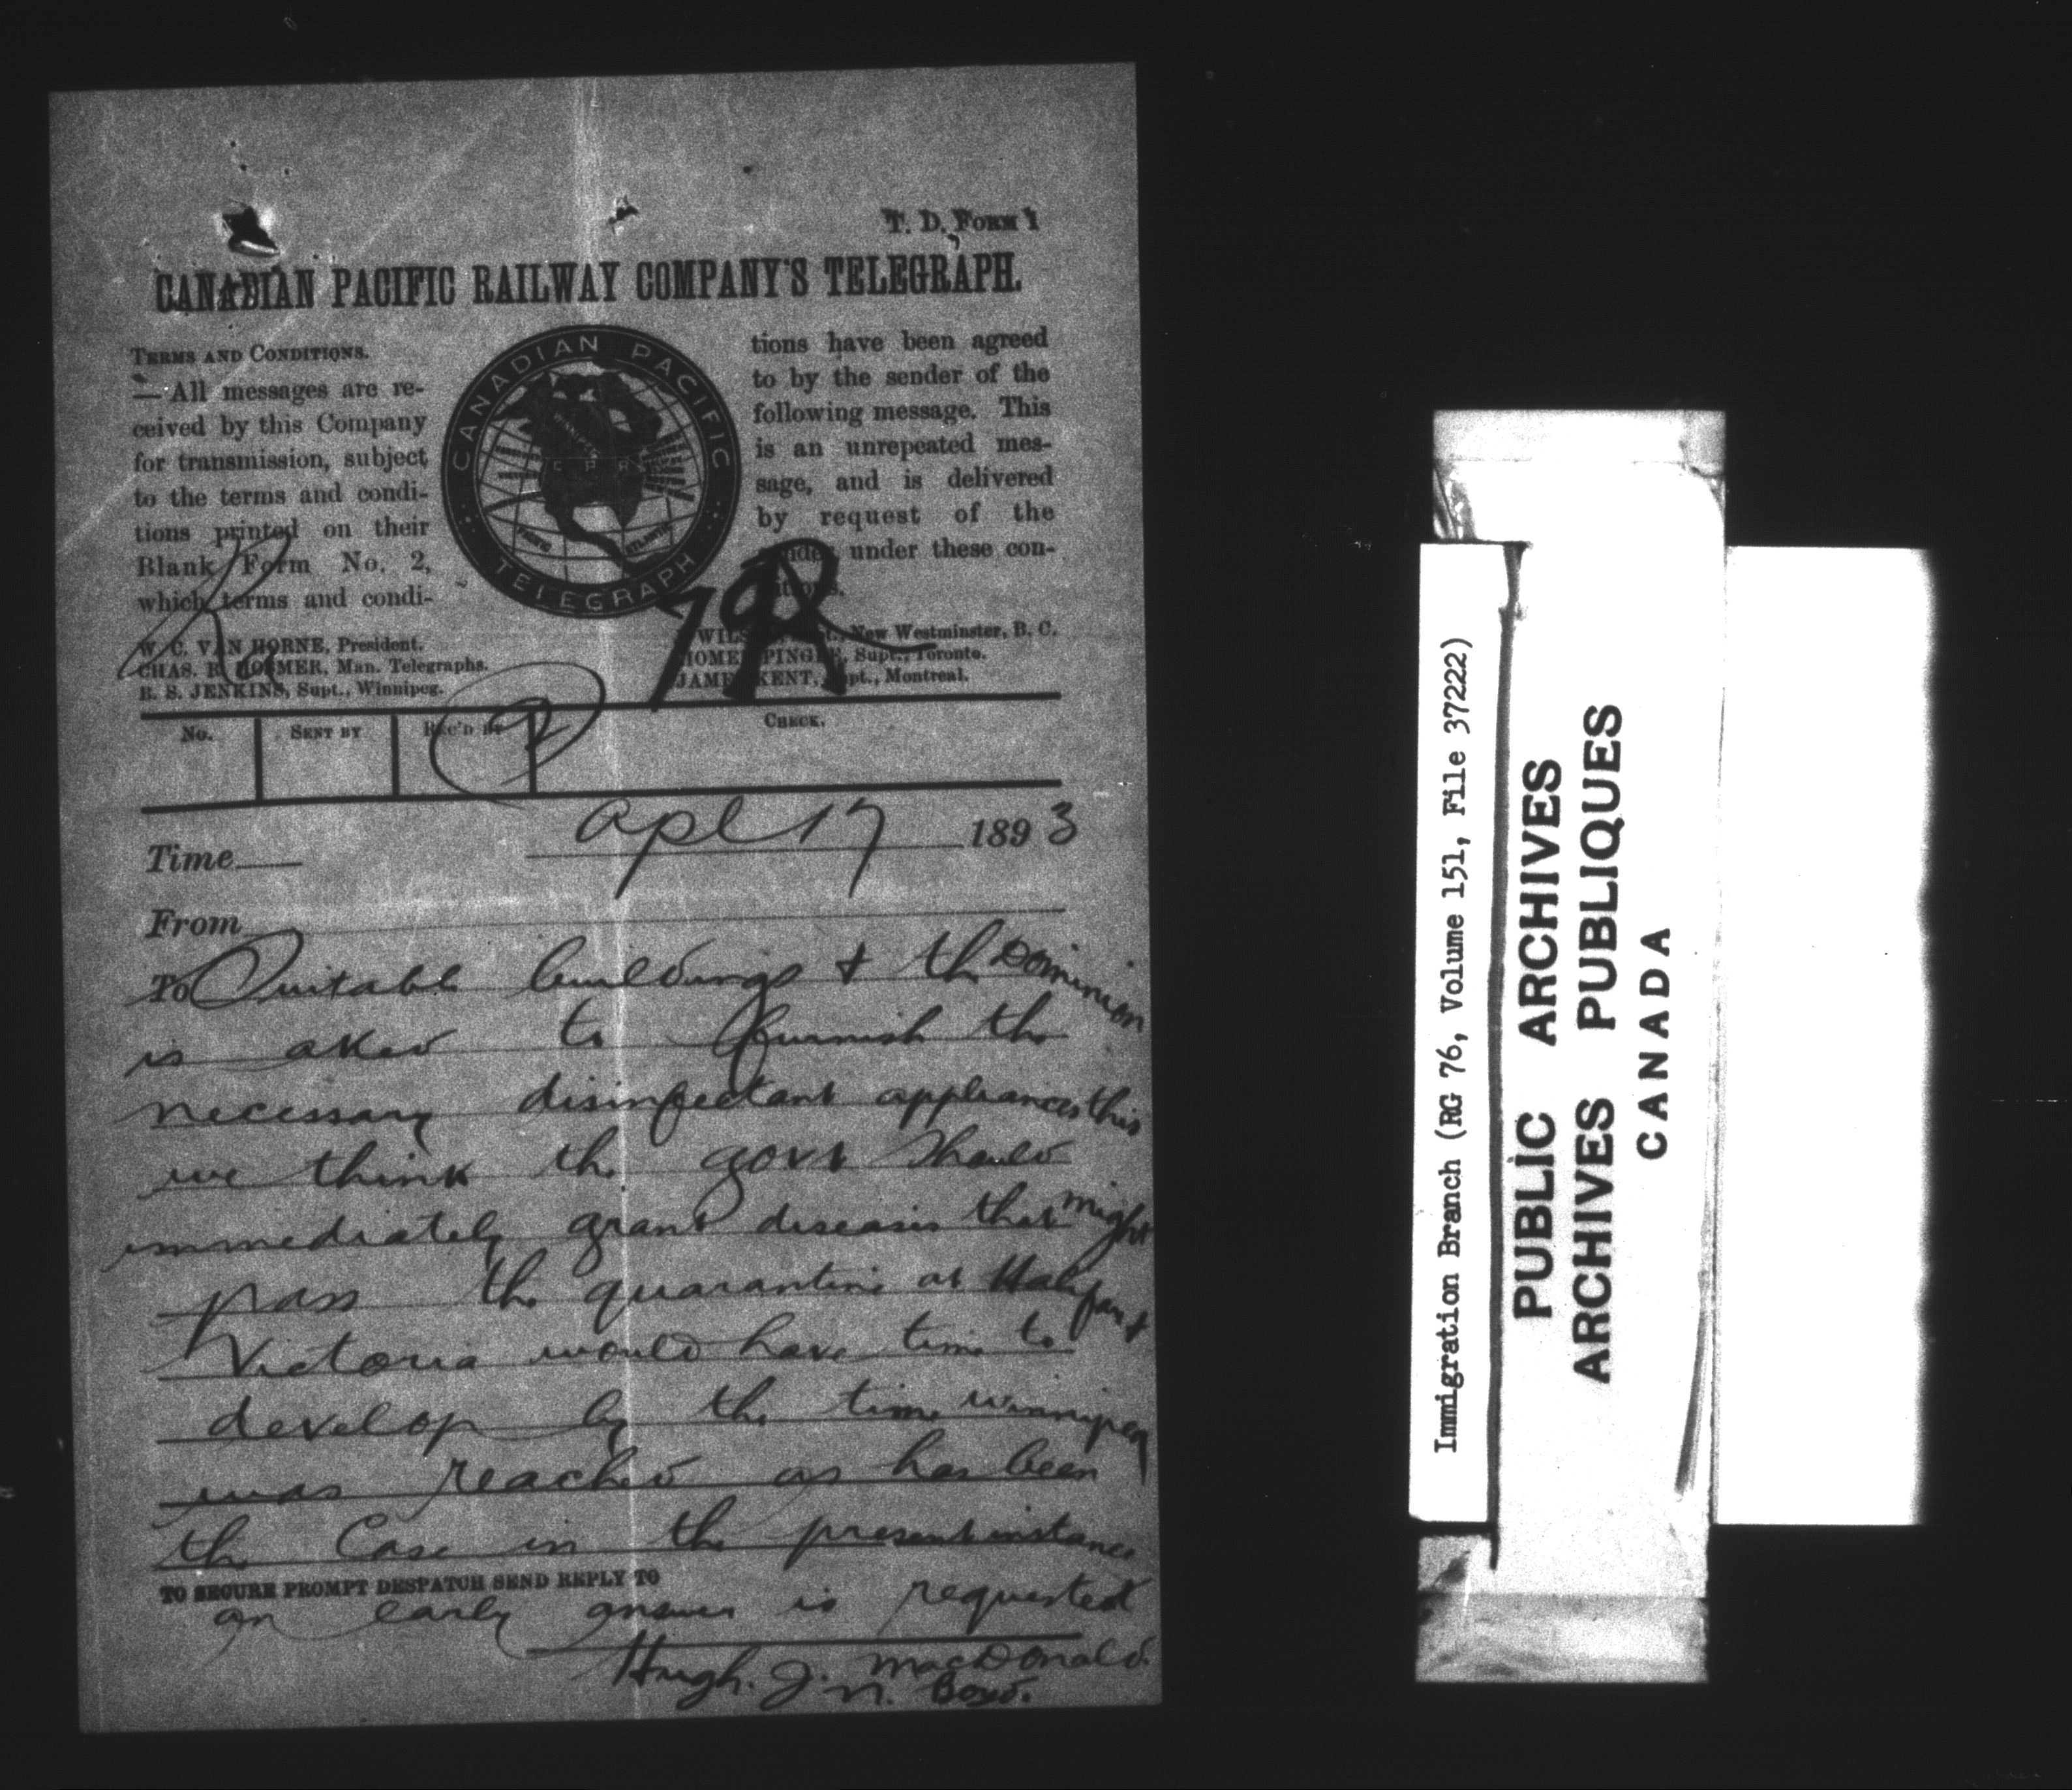 T. D. FORM 1
CANADIAN PACIFIC RAILWAY COMPANY'S TELEGRAPH.
TERMS AND CONDITIONS.
—All messages are re-
ceived by this Company
for transmission, subject
to the terms and condi-
tions printed on their
Blank Form No. 2,
which terms and condi-
CANADIAN PACIFIC
C P R
PACIFIC
ATLANTIC
TELEGRAPH
tions have been agreed
to by the sender of the
following message. This
is an unrepeated mes-
sage, and is delivered
by request of the
sender under these con-
ditions.
W. C. VAN HORNE, President.
CHAS. R. HOSMER, Man. Telegraphs.
B. S. JENKINS, Supt., Winnipeg.
New Westminster, B. C.
HOMER PINGLE, Supt., Toronto.
JAMES KENT, Supt., Montreal.
No.
SENT BY
REC'D BY
CHECK.
Time
Apl 17 1893
From
To Suitable buildings & the Dominion
is asked to furnish the
necessary disinfectant appliances this
we think the govt should
immediately grant diseases that might
pass the quarantine at Halifax &
Victoria would have time to
develop by the time winnipeg
was reached as has been
the Case in the present instance
TO SECURE PROMPT DESPATCH SEND REPLY TO
an early answer is requested
Hugh. J. MacDonald.
n. Boyd.
Immigration Branch (RG 76, Volume 151, File 37222)
PUBLIC ARCHIVES
ARCHIVES PUBLIQUES
CANADA